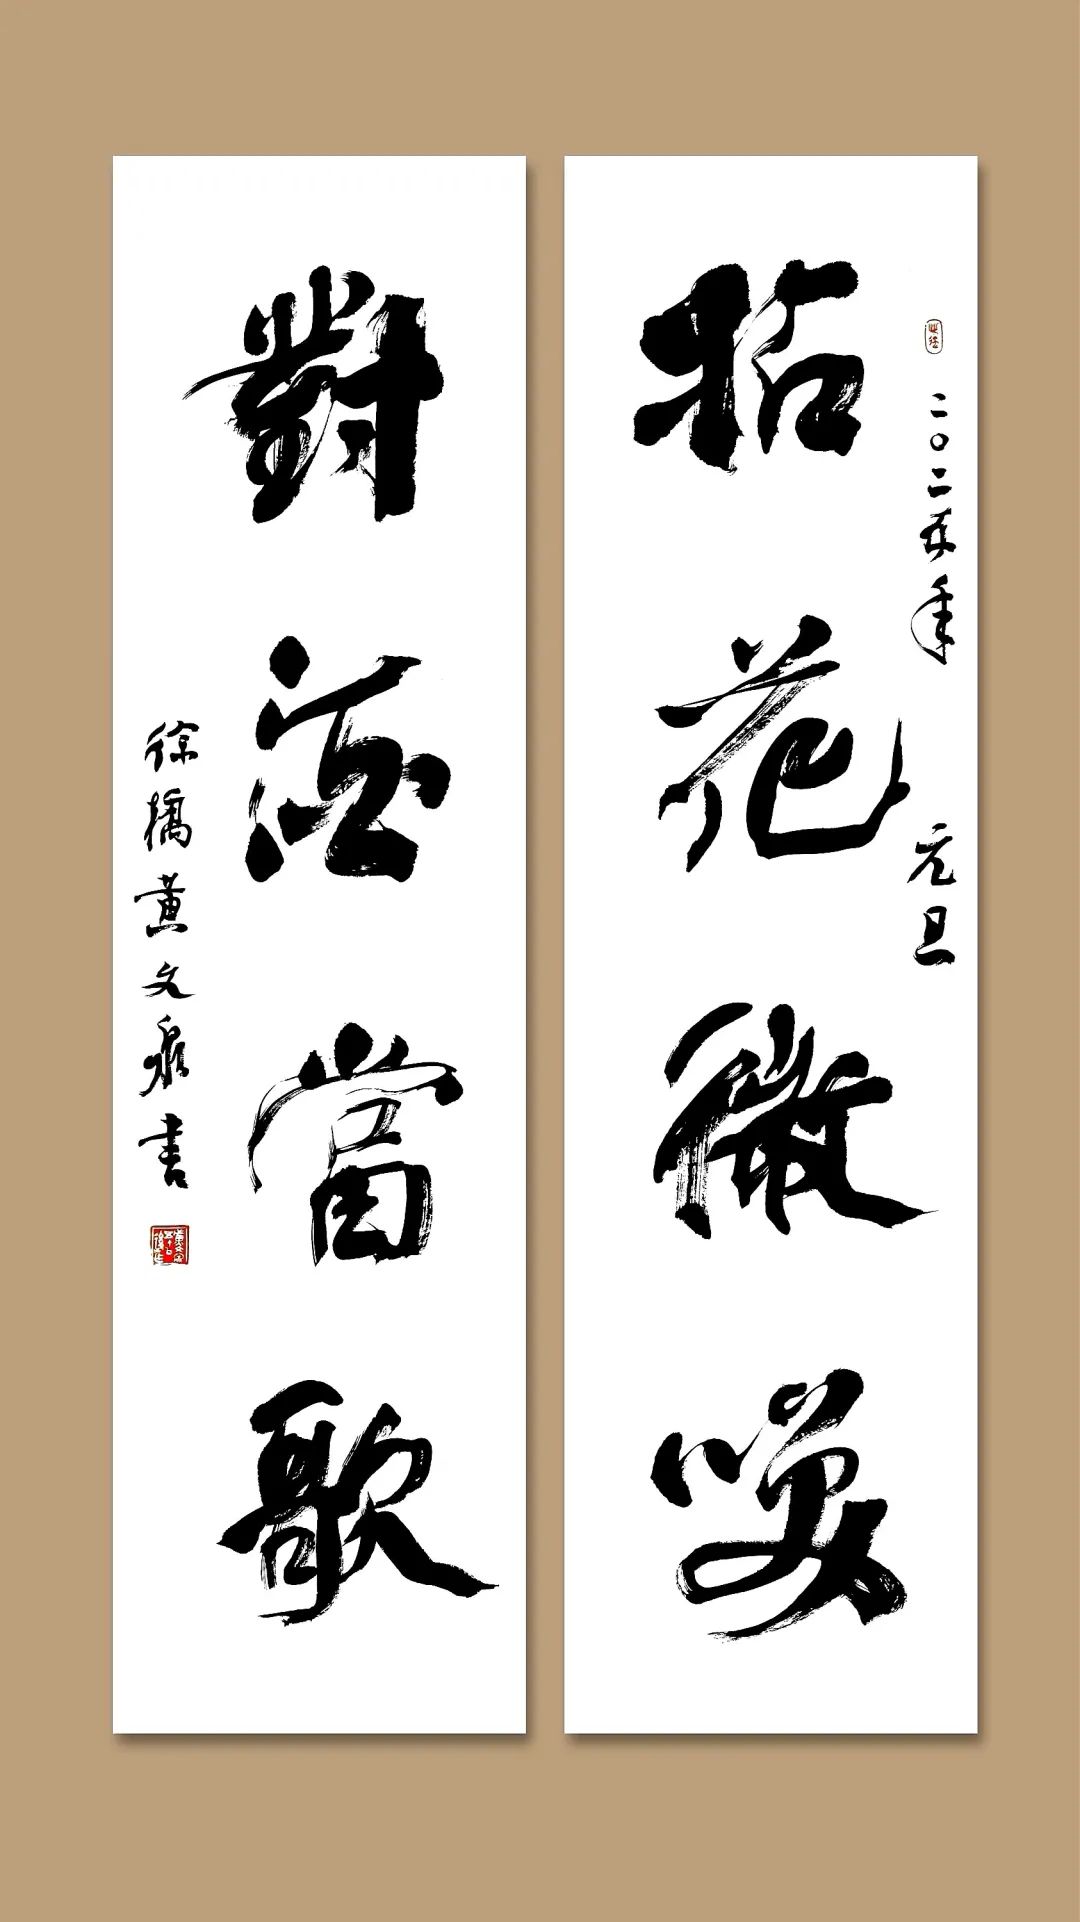 拈花微咲
二〇二五年 元旦
對酒當歌
徐橋黄文泉書